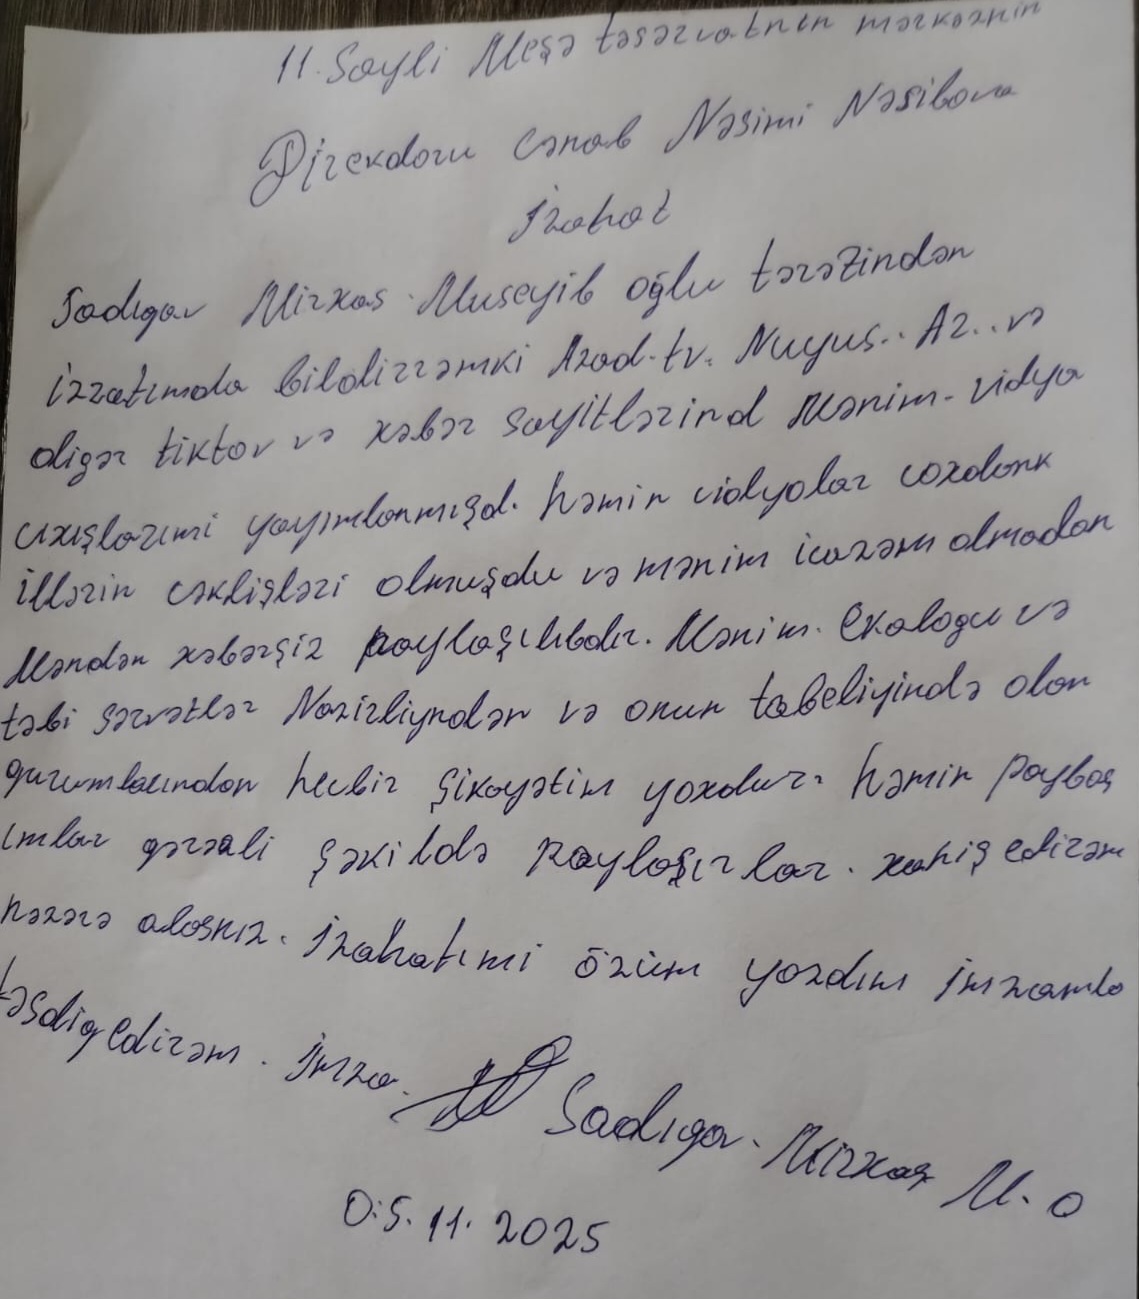 11. Sayli Meşə təsərvatnın mərkəznin
Direkdoru Cənab Nəsimi Nəsibova
İzahat
Sadıgov Mirxas Museyib oğlu tərəfindən
izzatımda bildirrəmki Azad.tv. Nuyus.. Az.. və
digər tiktov və xəbər sayitlərind Mənim. vidyo
cıxışlarımi yayımlanmışd. həmin vidyolar coxdank
illərin cəklişləri olmuşdu və mənim icazəm olmadan
Məndən xəbərsiz paylaşılıbdır. Mənim. Ekalogu və
təbi sərvətlər Nazirliyndən və onun tabeliyində olan
qurumlarından hecbir şikayətim yoxdur. həmin paylaş
ımlar qərəzli şəkildə paylaşırlar. xahiş edirəm
nəzərə alasnız. İzahatımi özüm yazdım imzamla
təsdiq edirəm. İmza. Sadıgov. Mirxas M. o
05. 11. 2025